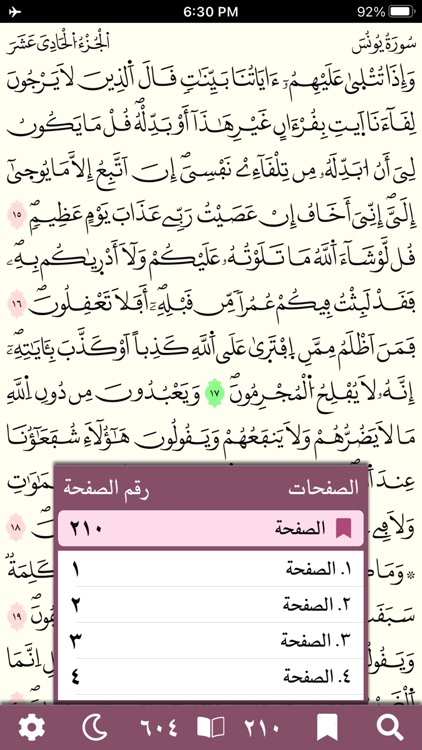 6:30 PM
92%
سُورَةُ يُونُسَ
اَلْجُزْءُ اُلْحَادِىَ عَشَرَ
وَإِذَا تُتْلىٰ عَلَيْهِمُۥٓ ءَايَاتُنَا بَيِّنَٰتٖ قَالَ اَلذِينَ لَا يَرْجُونَ
لِقَآءَنَا اَيتِ بِقُرْءَانٍ غَيْرِ هَٰذَآ أَوْ بَدِّلْهُۖ قُلْ مَا يَكُونُ
لِىَ أَنُ ابَدِّلَهُۥ مِن تِلْقَآءِےْ نَفْسِىَۖ إِنَ اَتَّبِعُ إِلَّا مَا يُوحىٰٓ
إِلَىَّۖ إِنِّىَ أَخَافُ إِنْ عَصَيْتُ رَبِّے عَذَابَ يَوْمٍ عَظِيمٖۖ ١٥
قُل لَّوْ شَآءَ اَللَّهُ مَا تَلَوْتُهُۥ عَلَيْكُمْ وَلَآ أَدْر۪يٰكُم بِهِۦۖ
فَقَدْ لَبِثْتُ فِيكُمْ عُمُراً مِّن قَبْلِهِۦٓۖ أَفَلَا تَعْقِلُونَۖ ١٦
فَمَنَ اَظْلَمُ مِمَّنِ اِفْتَر۪يٰ عَلَى اَللَّهِ كَذِباً اَوْ كَذَّبَ بِـَٔايَٰتِهِۦٓۖ
إِنَّهُۥ لَا يُفْلِحُ اُلْمُجْرِمُونَۖ ١٧ وَيَعْبُدُونَ مِن دُونِ اِللَّهِ
مَا لَا يَضُرُّهُمْ وَلَا يَنفَعُهُمْ وَيَقُولُونَ هَٰٓؤُلَآءِ شُفَعَٰٓؤُنَا
عِندَ
وَلَا فِے
١٨
وَمَا
كَلِمَةٞ
سَبَقَتْ
١٩
وَيَقُولُ
إِنَّمَا
الصفحات رقم الصفحة
الصفحة ٢١٠
١. الصفحة ١
٢. الصفحة ٢
٣. الصفحة ٣
٤. الصفحة ٤
٢١٠
٦٠٤